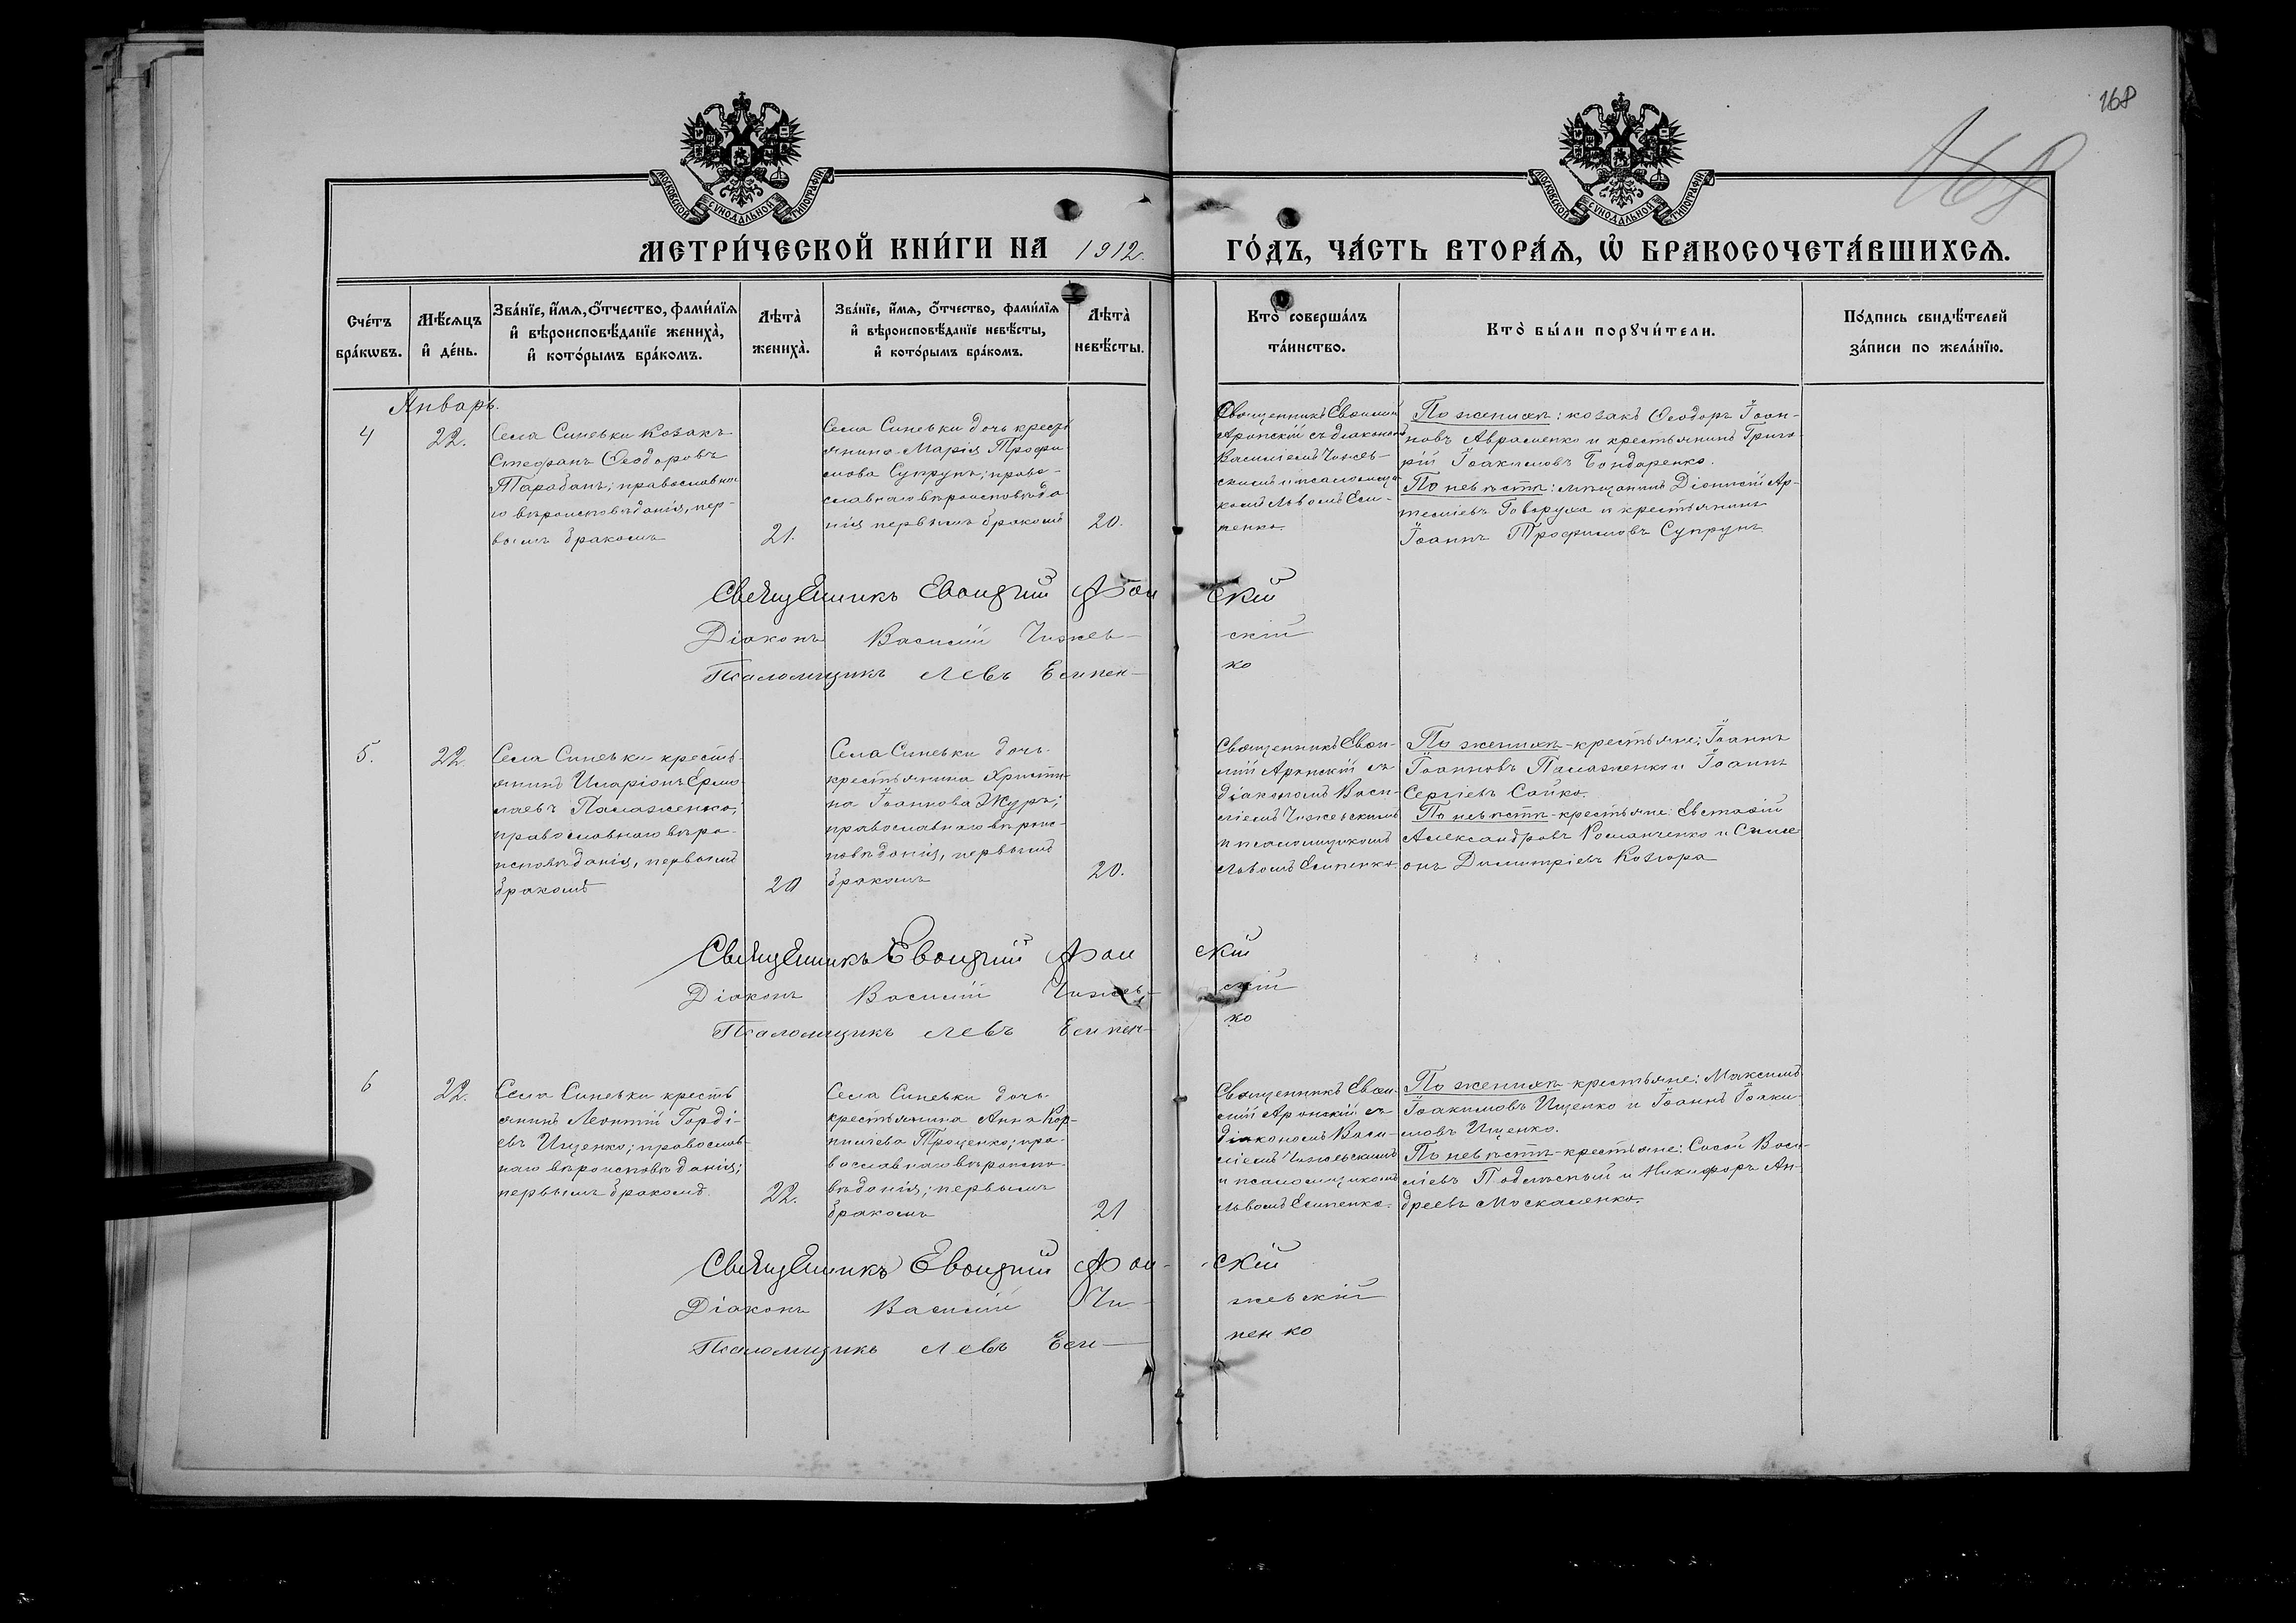 168
168
МОСКОВСКОЙ СѴНОДАЛЬНОЙ ТИПОГРАФІИ
МОСКОВСКОЙ СѴНОДАЛЬНОЙ ТИПОГРАФІИ
МЕТРИ́ЧЕСКОЙ КНИ́ГИ НА 1912.
ГО́ДЪ, ЧА́СТЬ ВТОРА́Ѧ, Ѡ҆ БРАКОСОЧЕТА́ВШИХСѦ.
Сче́тъ бра́кѡвъ.
Мѣ́сяцъ и҆ де́нь.
Зва́нїе, и҆́мѧ, ѻ҆́тчество, фами́лїѧ и҆ вѣроисповѣ́данїе жениха̀, и҆ кото́рымъ бра́комъ.
Лѣта̀ жениха̀.
Зва́нїе, и҆́мѧ, ѻ҆́тчество, фами́лїѧ и҆ вѣроисповѣ́данїе невѣ́сты, и҆ кото́рымъ бра́комъ.
Лѣта̀ невѣ́сты.
Кто̀ соверша́лъ та́инство.
Кто̀ бы́ли порꙋчи́тели.
По́дпись свидѣ́телей за́писи по жела́нїю.
Январь.
4
22.
Села Синевки козакъ
Стефанъ Ѳеодоровъ
Тарабанъ; православна
го вѣроисповѣданія, пер-
вымъ бракомъ
21.
Села Синевки дочь кресть
янина Марія Трофи
мова Супрунъ; право-
славнаго вѣроисповѣда
нія первымъ бракомъ
20.
Священникъ Евѳимій
Аронскій съ діакономъ
Василіемъ Чижев-
скимъ и псаломщи
комъ Львомъ Еси-
пенко.
По женихѣ: козакъ Ѳеодоръ Іоан-
новъ Авраменко и крестьянинъ Григо
рій Іоакимовъ Бондаренко.
По невѣстѣ: мѣщанинъ Діонисій Ар-
теміевъ Говоруха и крестьянинъ
Іоаннъ Трофимовъ Супрунъ
Священникъ Евѳимій
скій
Діаконъ Василій Чижев-
скій
Псаломщикъ Левъ Есипен-
ко
5.
22
Села Синевки кресть
янинъ Иларіонъ Ермо
лаевъ Паламженко;
православнаго вѣро-
исповѣданія, первымъ
бракомъ
20
Села Синевки дочь
крестьянина Христи-
на Іоаннова Журъ;
православнаго вѣроис-
повѣданія, первымъ
бракомъ
20.
Священникъ Евѳи-
мій Аронскій съ
діакономъ Васи-
ліемъ Чижевскимъ
и псаломщикомъ
Львомъ Есипенко.
По женихѣ - крестьяне: Іоаннъ
Іоанновъ Паламженко и Іоаннъ
Сергіевъ Сайко.
По невѣстѣ - крестьяне: Евстафій
Александровъ Романченко и Симе
онъ Димитріевъ Козюра
Священникъ Евѳимій
скій
Діаконъ Василій Чижев-
скій
Псаломщикъ Левъ Есипен-
ко
6
22.
Села Синевки кресть
янинъ Леонтій Горді-
евъ Ищенко; православ-
наго вѣроисповѣданія;
первымъ бракомъ.
22.
Села Синевки дочь
крестьянина Анна Кор-
ниліева Троценко; пра-
вославнаго вѣроиспо-
вѣданія; первымъ
бракомъ
21
Священникъ Евѳи-
мій Аронскій съ
діакономъ Васи-
ліемъ Чижевскимъ
и псаломщикомъ
Львомъ Есипенко.
По женихѣ - крестьяне: Максимъ
Іоакимовъ Ищенко и Іоаннъ Іоаки
мовъ Ищенко.
По невѣстѣ - крестьяне: Сисой Васи-
ліевъ и Никифоръ Ан-
дреевъ Москаленко.
Священникъ Евѳимій
скій
Діаконъ Василій Чи-
жевскій
Псаломщикъ Левъ Еси-
пенко